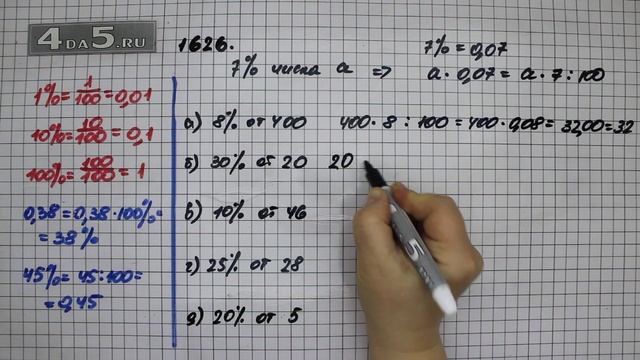 4DA5.RU
1626.
7% числа a => a · 0,07 = a · 7 : 100
7% = 0,07
1% = 1/100 = 0,01
10% = 10/100 = 0,1
100% = 100/100 = 1
0,38 = 0,38 · 100% =
= 38%
45% = 45 : 100 =
= 0,45
а) 8% от 400 400 · 8 : 100 = 400 · 0,08 = 32,00 = 32
б) 30% от 20 20
в) 10% от 46
г) 25% от 28
д) 20% от 5
5